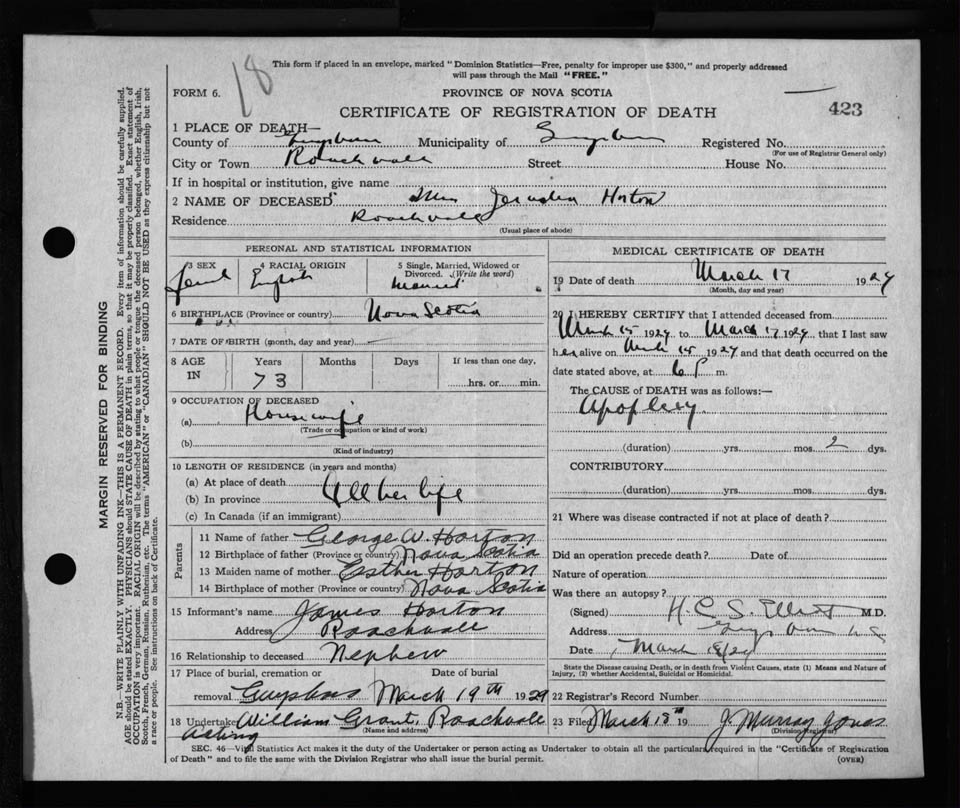 18
This form if placed in an envelope, marked "Dominion Statistics—Free, penalty for improper use $300," and properly addressed
will pass through the Mail "FREE."
FORM 6.
PROVINCE OF NOVA SCOTIA
CERTIFICATE OF REGISTRATION OF DEATH
423
MARGIN RESERVED FOR BINDING
N.B.—WRITE PLAINLY WITH UNFADING INK—THIS IS A PERMANENT RECORD. Every item of information should be carefully supplied.
AGE should be stated EXACTLY. PHYSICIANS should STATE CAUSE OF DEATH in plain terms, so that it may be properly classified. Exact statement of
OCCUPATION is very important. RACIAL ORIGIN will be described by stating to what people or tongue the deceased person belonged, whether English, Irish,
Scotch, French, German, Russian, Ruthenian, etc. The terms "AMERICAN" or "CANADIAN" SHOULD NOT BE USED as they express citizenship but not
a race or people. See instructions on back of Certificate.
1 PLACE OF DEATH—
County of Municipality of Registered No.
(For use of Registrar General only)
City or Town Roachvale Street House No.
If in hospital or institution, give name
2 NAME OF DECEASED Mrs Jerusha Horton
Residence Roachvale
(Usual place of abode)
PERSONAL AND STATISTICAL INFORMATION
3 SEX 4 RACIAL ORIGIN 5 Single, Married, Widowed or
Divorced. (Write the word)
English Married
6 BIRTHPLACE (Province or country) Nova Scotia
7 DATE OF BIRTH (month, day and year) —
8 AGE IN Years Months Days If less than one day,
73 hrs. or min.
9 OCCUPATION OF DECEASED
(a) Housewife
(Trade or occupation or kind of work)
(b)
(Kind of industry)
10 LENGTH OF RESIDENCE (in years and months)
(a) At place of death
(b) In province All her life
(c) In Canada (if an immigrant)
Parents
11 Name of father George W. Horton
12 Birthplace of father (Province or country) Nova Scotia
13 Maiden name of mother Esther Horton
14 Birthplace of mother (Province or country) Nova Scotia
15 Informant's name James Horton
Address Roachvale
16 Relationship to deceased Nephew
17 Place of burial, cremation or Date of burial
removal March 19th 1929
18 Undertaker William Grant, Roachvale
(Name and address)
Acting
MEDICAL CERTIFICATE OF DEATH
19 Date of death March 17 1929
(Month, day and year)
20 I HEREBY CERTIFY that I attended deceased from
March 15 1929 to March 17 1929, that I last saw
her alive on 1929 and that death occurred on the
date stated above, at 6 P m.
The CAUSE OF DEATH was as follows:—
Apoplexy
(duration) yrs. mos. 2 dys.
CONTRIBUTORY
(duration) yrs. mos. dys.
21 Where was disease contracted if not at place of death?
Did an operation precede death? Date of
Nature of operation
Was there an autopsy?
(Signed) H. C. S. Elliott M.D.
Address
Date March 18/29
State the Disease causing Death, or in death from Violent Causes, state (1) Means and Nature of
Injury, (2) whether Accidental, Suicidal or Homicidal.
22 Registrar's Record Number
23 Filed March 18th 19 J. Murray Jones
(Division Registrar)
SEC. 46—Vital Statistics Act makes it the duty of the Undertaker or person acting as Undertaker to obtain all the particulars required in the "Certificate of Registration
of Death" and to file the same with the Division Registrar who shall issue the burial permit. (OVER)